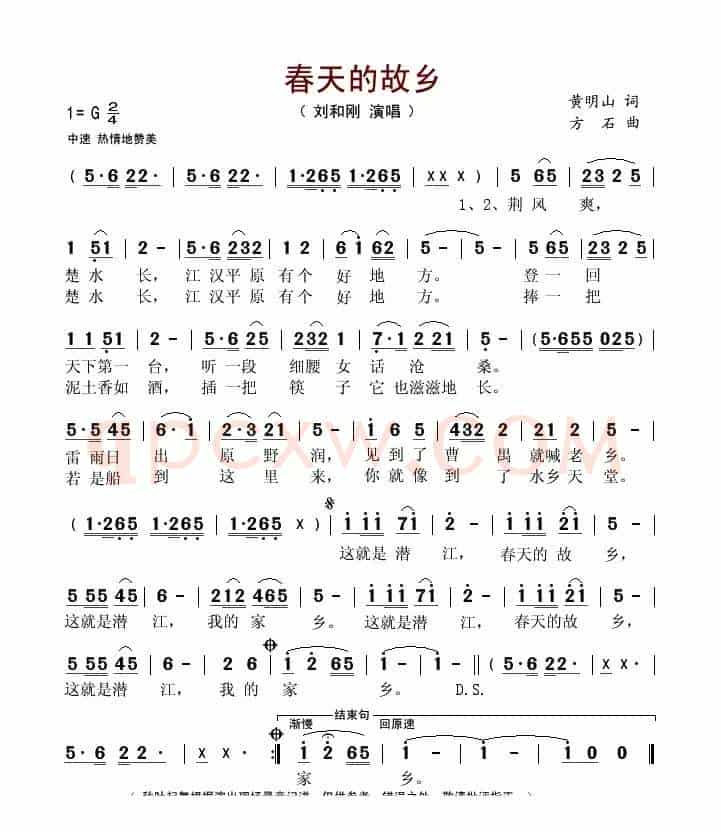 春天的故乡
1=G 2/4
( 刘和刚 演唱 )
黄明山 词
方 石 曲
中速 热情地赞美
( 5·6 22· | 5·6 22· | 1·265 1·265 | XX X ) | 5 65 | 2325 |
1、2、荆 风 爽,
1 51 | 2 - | 5·6 232 | 1 2 | 6i 62 | 5 - | 5 - | 5 565 | 2235 |
楚 水 长, 江 汉平 原 有 个 好 地 方。 登 一 回
楚 水 长, 江 汉平 原 有 个 好 地 方。 捧 一 把
1 1 51 | 2 - | 5·6 25 | 232 1 | 7·1 2 21 | 5 - | (5·655 025) |
天下第一 台, 听 一段 细腰 女 话 沧 桑。
泥土香如 酒, 插 一把 筷 子 它 也滋滋地 长。
5·5 45 | 6·i | 2·3 21 | 5 - | i6 5 | 5 432 | 2 21 2 | 5 - |
雷 雨日 出 原 野 润, 见 到了 曹 禺 就喊 老 乡。
若 是船 到 这 里 来, 你 就像 到 了 水乡 天 堂。
qpcxw.com
( 1·265 1·265 | 1·265 X ) | i ii 7i | 2 - | i ii 2i | 5 - |
这就是 潜 江, 春天的 故 乡,
5 55 45 | 6 - | 212 465 | 5 - | i ii 7i | 2 - | i ii 2i | 5 - |
这就是潜 江, 我的 家 乡。 这就是潜 江, 春天的 故 乡,
5 55 45 | 6 - | 2 6 | i 2 65 | i - | i - | (5·6 22· | X·X· |
这就是潜 江, 我 的 家 乡。 D.S.
渐慢 结束句 回原速
5·6 22· | X X· :| i 2 65 | i - | i - | i - | i 0 0 |
家 乡。